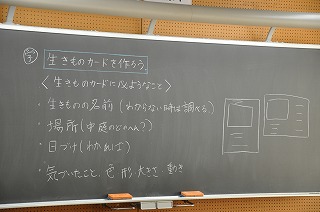 生きものカードを作ろう
＜生きものカードに
・生きものの名前(わからない時は調べる)
・場所(中庭のどのへん?)
・日づけ(わかれば)
・気づいたこと、色 形、大きさ、動き